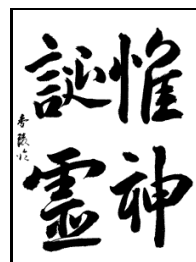 惟神
誕靈